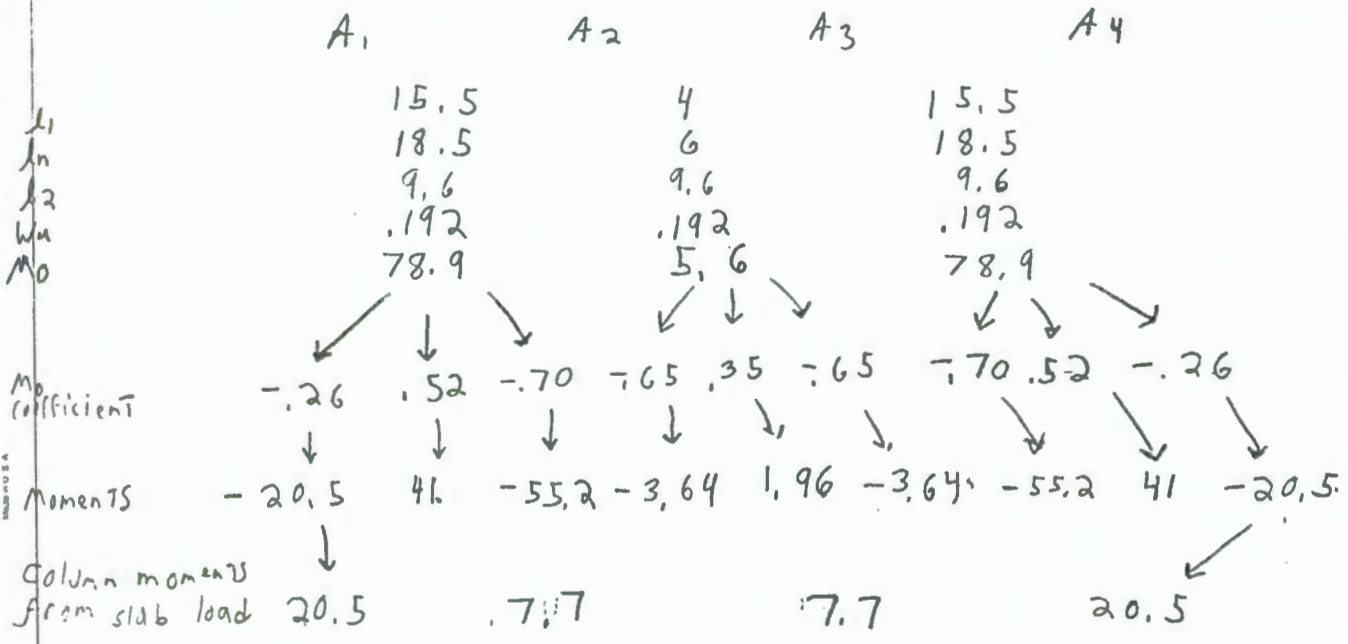 A1 A2 A3 A4
l1 15.5 4 15.5
ln 18.5 6 18.5
l2 9.6 9.6 9.6
Wu .192 .192 .192
Mo 78.9 5.6 78.9
Mo
cofficient -.26 .52 -.70 -.65 .35 -.65 -.70 .52 -.26
Moments -20.5 41. -55.2 -3.64 1.96 -3.64 -55.2 41 -20.5
Column moments
from slab load 20.5 7.7 7.7 20.5